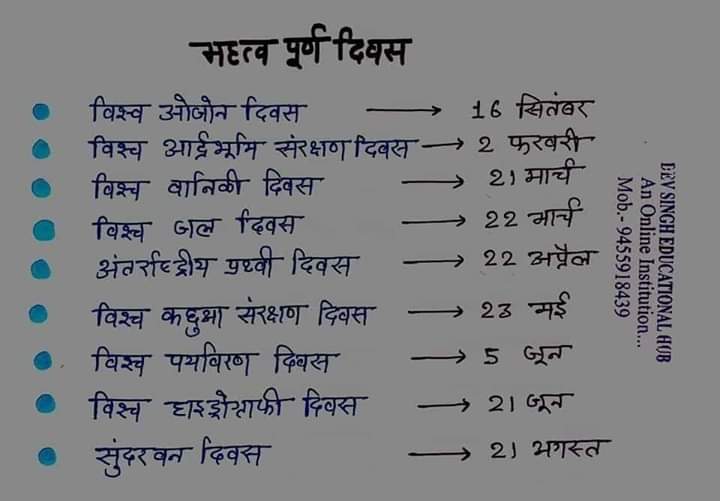 महत्व पूर्ण दिवस
विश्व ओजोन दिवस → 16 सितंबर
विश्व आर्द्रभूमि संरक्षण दिवस → 2 फरवरी
विश्व वानिकी दिवस → 21 मार्च
विश्व जल दिवस → 22 मार्च
अंतर्राष्ट्रीय पृथ्वी दिवस → 22 अप्रैल
विश्व कछुआ संरक्षण दिवस → 23 मई
विश्व पर्यावरण दिवस → 5 जून
विश्व हाइड्रोग्राफी दिवस → 21 जून
सुंदरवन दिवस → 21 अगस्त
DEV SINGH EDUCATIONAL HUB
An Online Institution...
Mob.- 9455918439